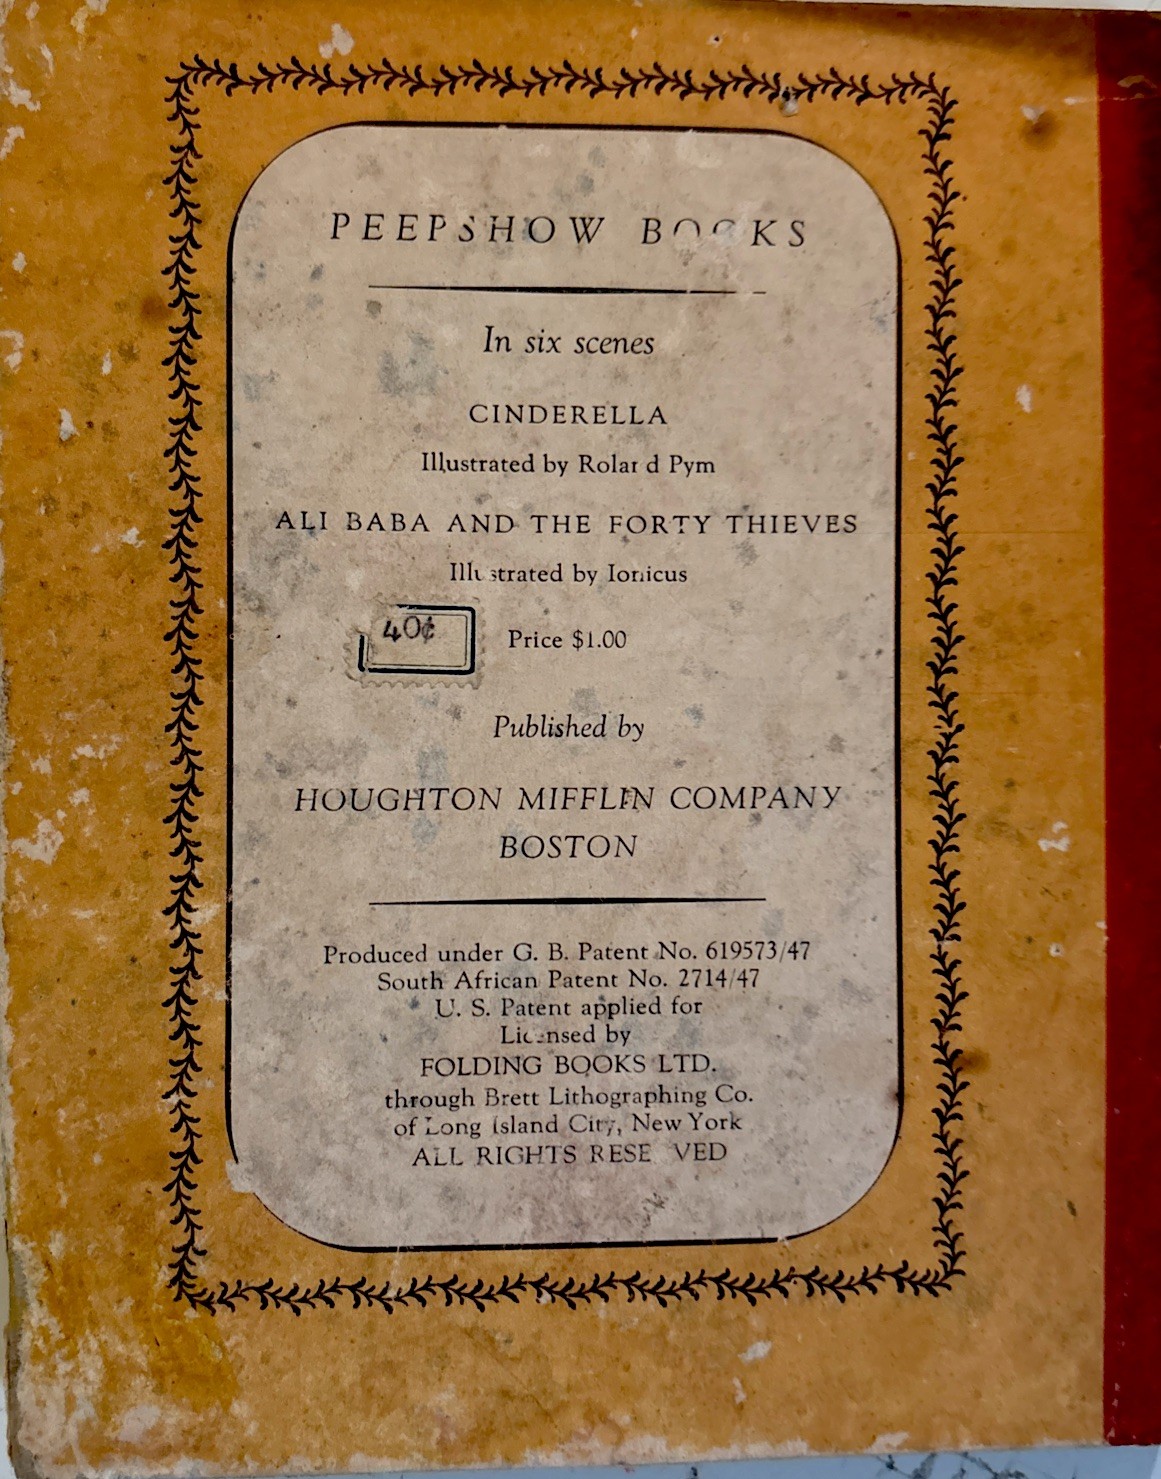 PEEPSHOW BOOKS
In six scenes
CINDERELLA
Illustrated by Roland Pym
ALI BABA AND THE FORTY THIEVES
Illustrated by Ionicus
40¢
Price $1.00
Published by
HOUGHTON MIFFLIN COMPANY
BOSTON
Produced under G. B. Patent No. 619573/47
South African Patent No. 2714/47
U. S. Patent applied for
Licensed by
FOLDING BOOKS LTD.
through Brett Lithographing Co.
of Long Island City, New York
ALL RIGHTS RESERVED